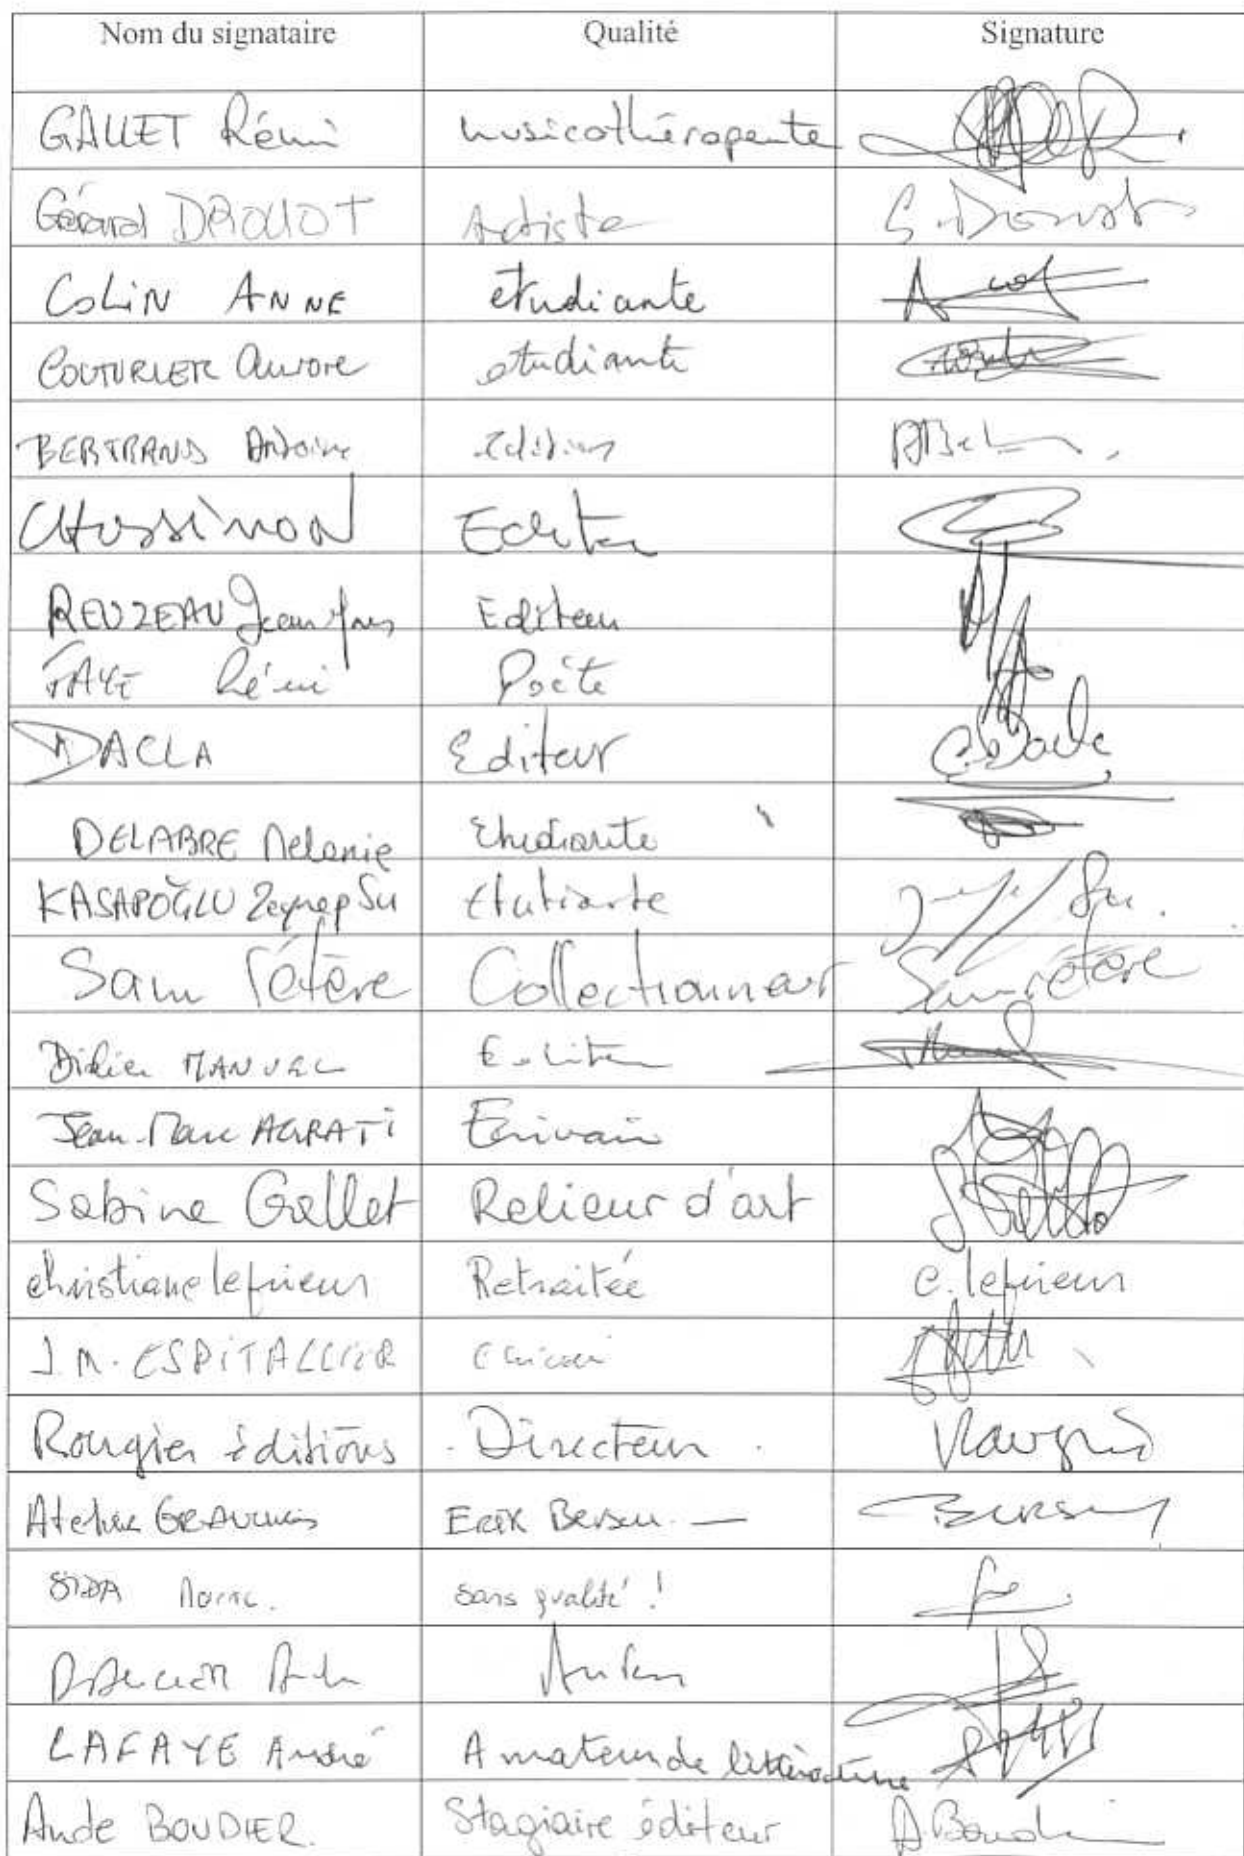 Nom du signataire Qualité Signature
GALLET Rémi musicothérapeute
Gérard DROUOT Artiste G. Drouot
COLIN ANNE étudiante
COUTURIER Aurore étudiante
BERTRAND Antoine édition
Editeur
REUZEAU Jean-Yves Editeur
FAYE Rémi Poète
DACLA Editeur
DELABRE Mélanie Etudiante
KASAPOĞLU Zeynep Su Etudiante Su
Sam Rétère Collectionneur Sam rétère
Didier MANUEL Editeur
Jean-Marc AGRATI Ecrivain
Sabine Gallet Relieur d'art
christiane leprieur Retraitée C. leprieur
J.M. ESPITALLIER écrivain
Rougier éditions Directeur
Atelier ERIK Bersou
sans qualité !
Auteur
LAFAYE André Amateur de littérature
Aude BOUDIER. Stagiaire éditeur A. Boudier